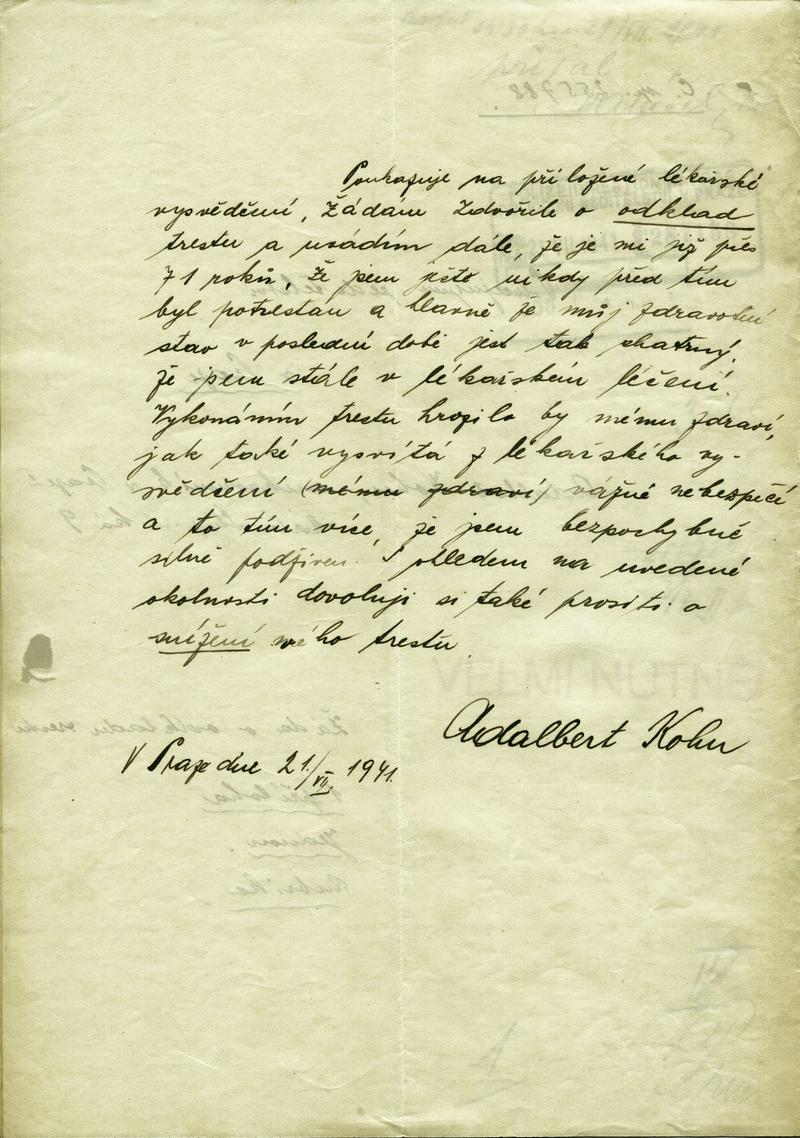 Poukazuje na při ložené lékařské
vysvědčení, žádám zdvořile o odklad
trestu a uvádím dále, že je mi již přes
71 roků, že jsem ještě nikdy před tím
byl potrestán a hlavně že můj zdravotní
stav v poslední době jest tak chatrný,
že jsem stále v lékařském léčení.
Vykonáním trestu hrozilo by mému zdraví,
jak také vysvítá z lékařského vy-
svědčení (mému zdraví) vážné nebezpečí
a to tím více, že jsem bezpochybně
silně podživen. S ohledem na uvedené
okolnosti dovoluji si také prositi o
snížení mého trestu.
Adalbert Kohn
V Praze dne 21./VII. 1941.